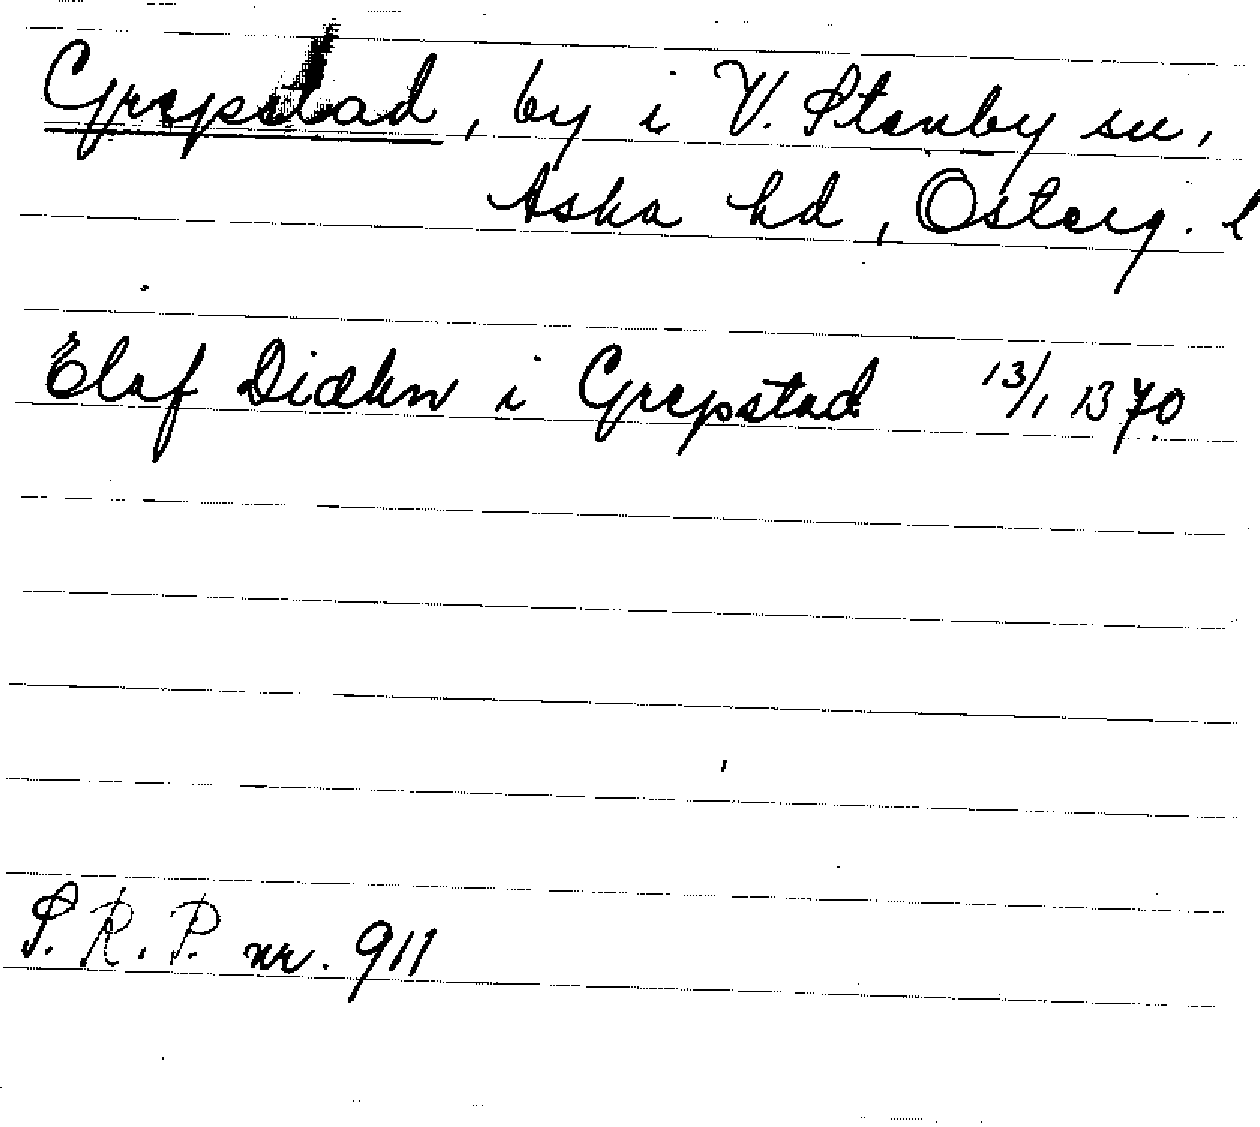 Grepstad, by i V. Stenby sn,
Aska hd, Österg. l
Elaf Diækn i Grepstad 13/1 1370
S.R.P. nr. 911